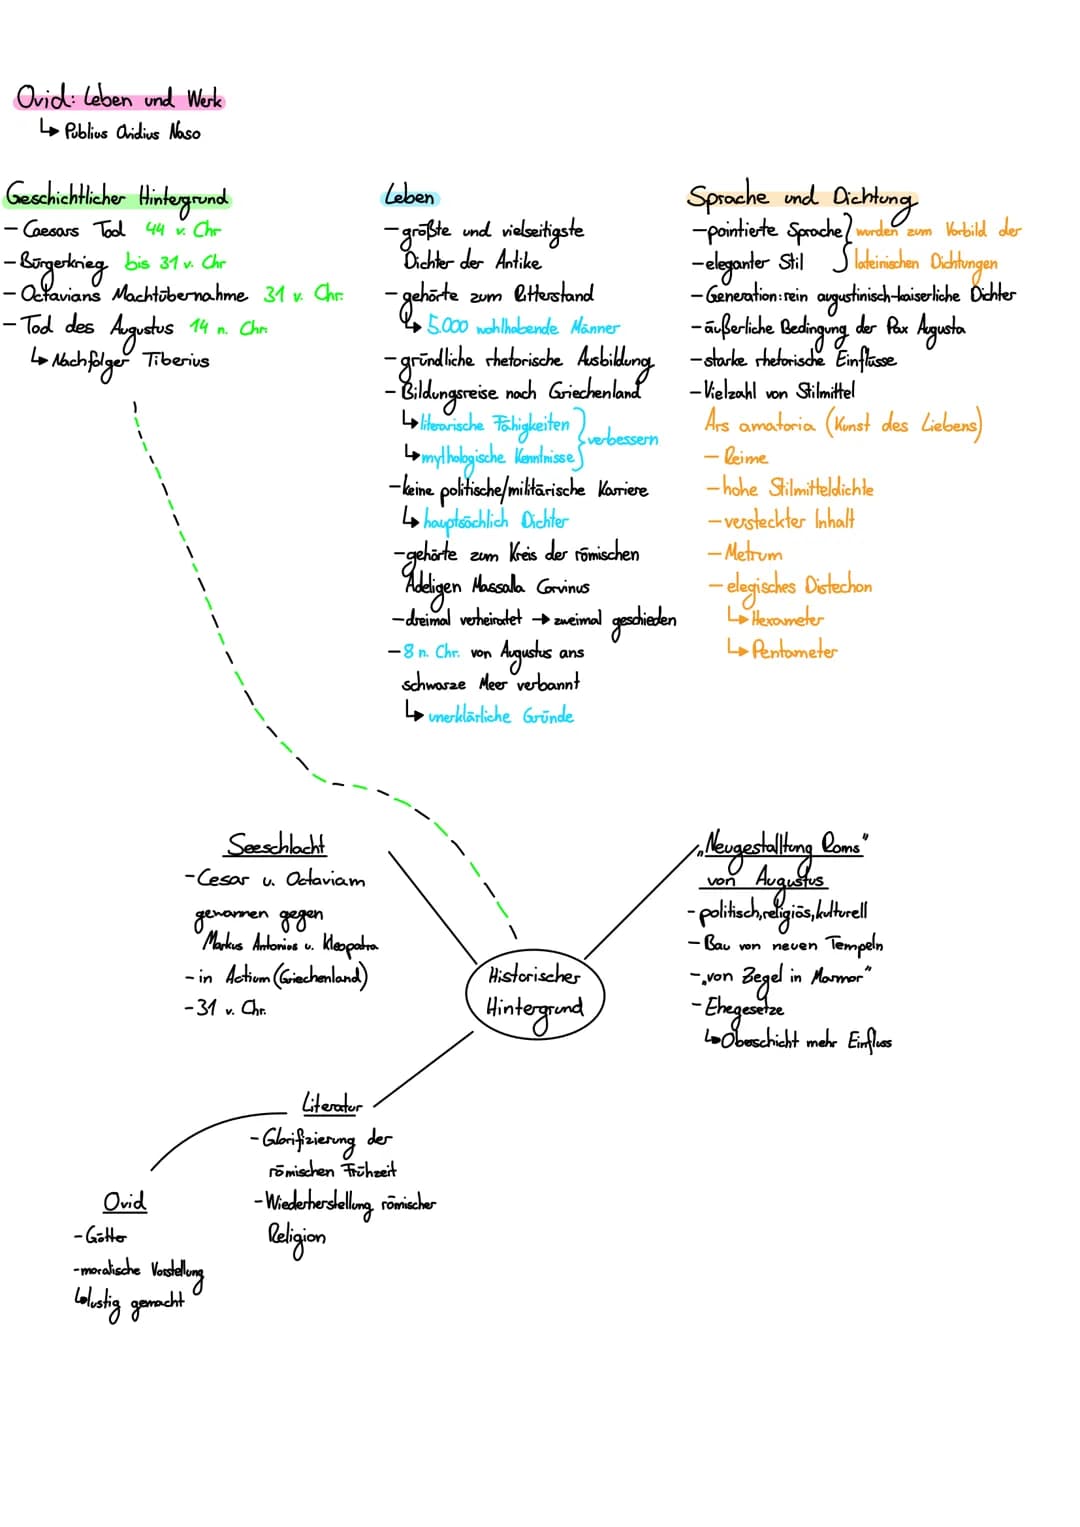 Ovid: Leben und Werk
↳ Publius Ovidius Naso
Geschichtlicher Hintergrund
- Caesars Tod 44 v. Chr
- Bürgerkrieg bis 31 v. Chr
- Octavians Machtübernahme 31 v. Chr.
- Tod des Augustus 14 n. Chr.
↳ Nachfolger Tiberius
Leben
- größte und vielseitigste
Dichter der Antike
- gehörte zum Ritterstand
↳ 5.000 wohlhabende Männer
- gründliche rhetorische Ausbildung
- Bildungsreise nach Griechenland
↳ literarische Fähigkeiten } verbessern
↳ mythologische Kenntnisse
- keine politische/militärische Karriere
↳ hauptsächlich Dichter
- gehörte zum Kreis der römischen
Adeligen Massalla Corvinus
- dreimal verheiratet → zweimal geschieden
- 8 n. Chr. von Augustus ans
schwarze Meer verbannt
↳ unerklärliche Gründe
Sprache und Dichtung
- pointierte Sprache } wurden zum Vorbild der
- eleganter Stil } lateinischen Dichtungen
- Generation: rein augustinisch-kaiserliche Dichter
- äußerliche Bedingung der Pax Augusta
- starke rhetorische Einflüsse
- Vielzahl von Stilmittel
Ars amatoria (Kunst des Liebens)
- Reime
- hohe Stilmitteldichte
- versteckter Inhalt
- Metrum
- elegisches Distechon
↳ Hexameter
↳ Pentameter
Seeschlacht
- Cesar u. Octaviam
gewannen gegen
Markus Antonius u. Kleopatra
- in Actium (Griechenland)
- 31 v. Chr.
Historischer
Hintergrund
„Neugestalltung Roms"
von Augustus
- politisch, religiös, kulturell
- Bau von neuen Tempeln
- „von Ziegel in Marmor"
- Ehegesetze
↳ Oberschicht mehr Einfluss
Literatur
- Glorifizierung der
römischen Frühzeit
- Wiederherstellung römischer
Religion
Ovid
- Götter
- moralische Vorstellung
↳ lustig gemacht